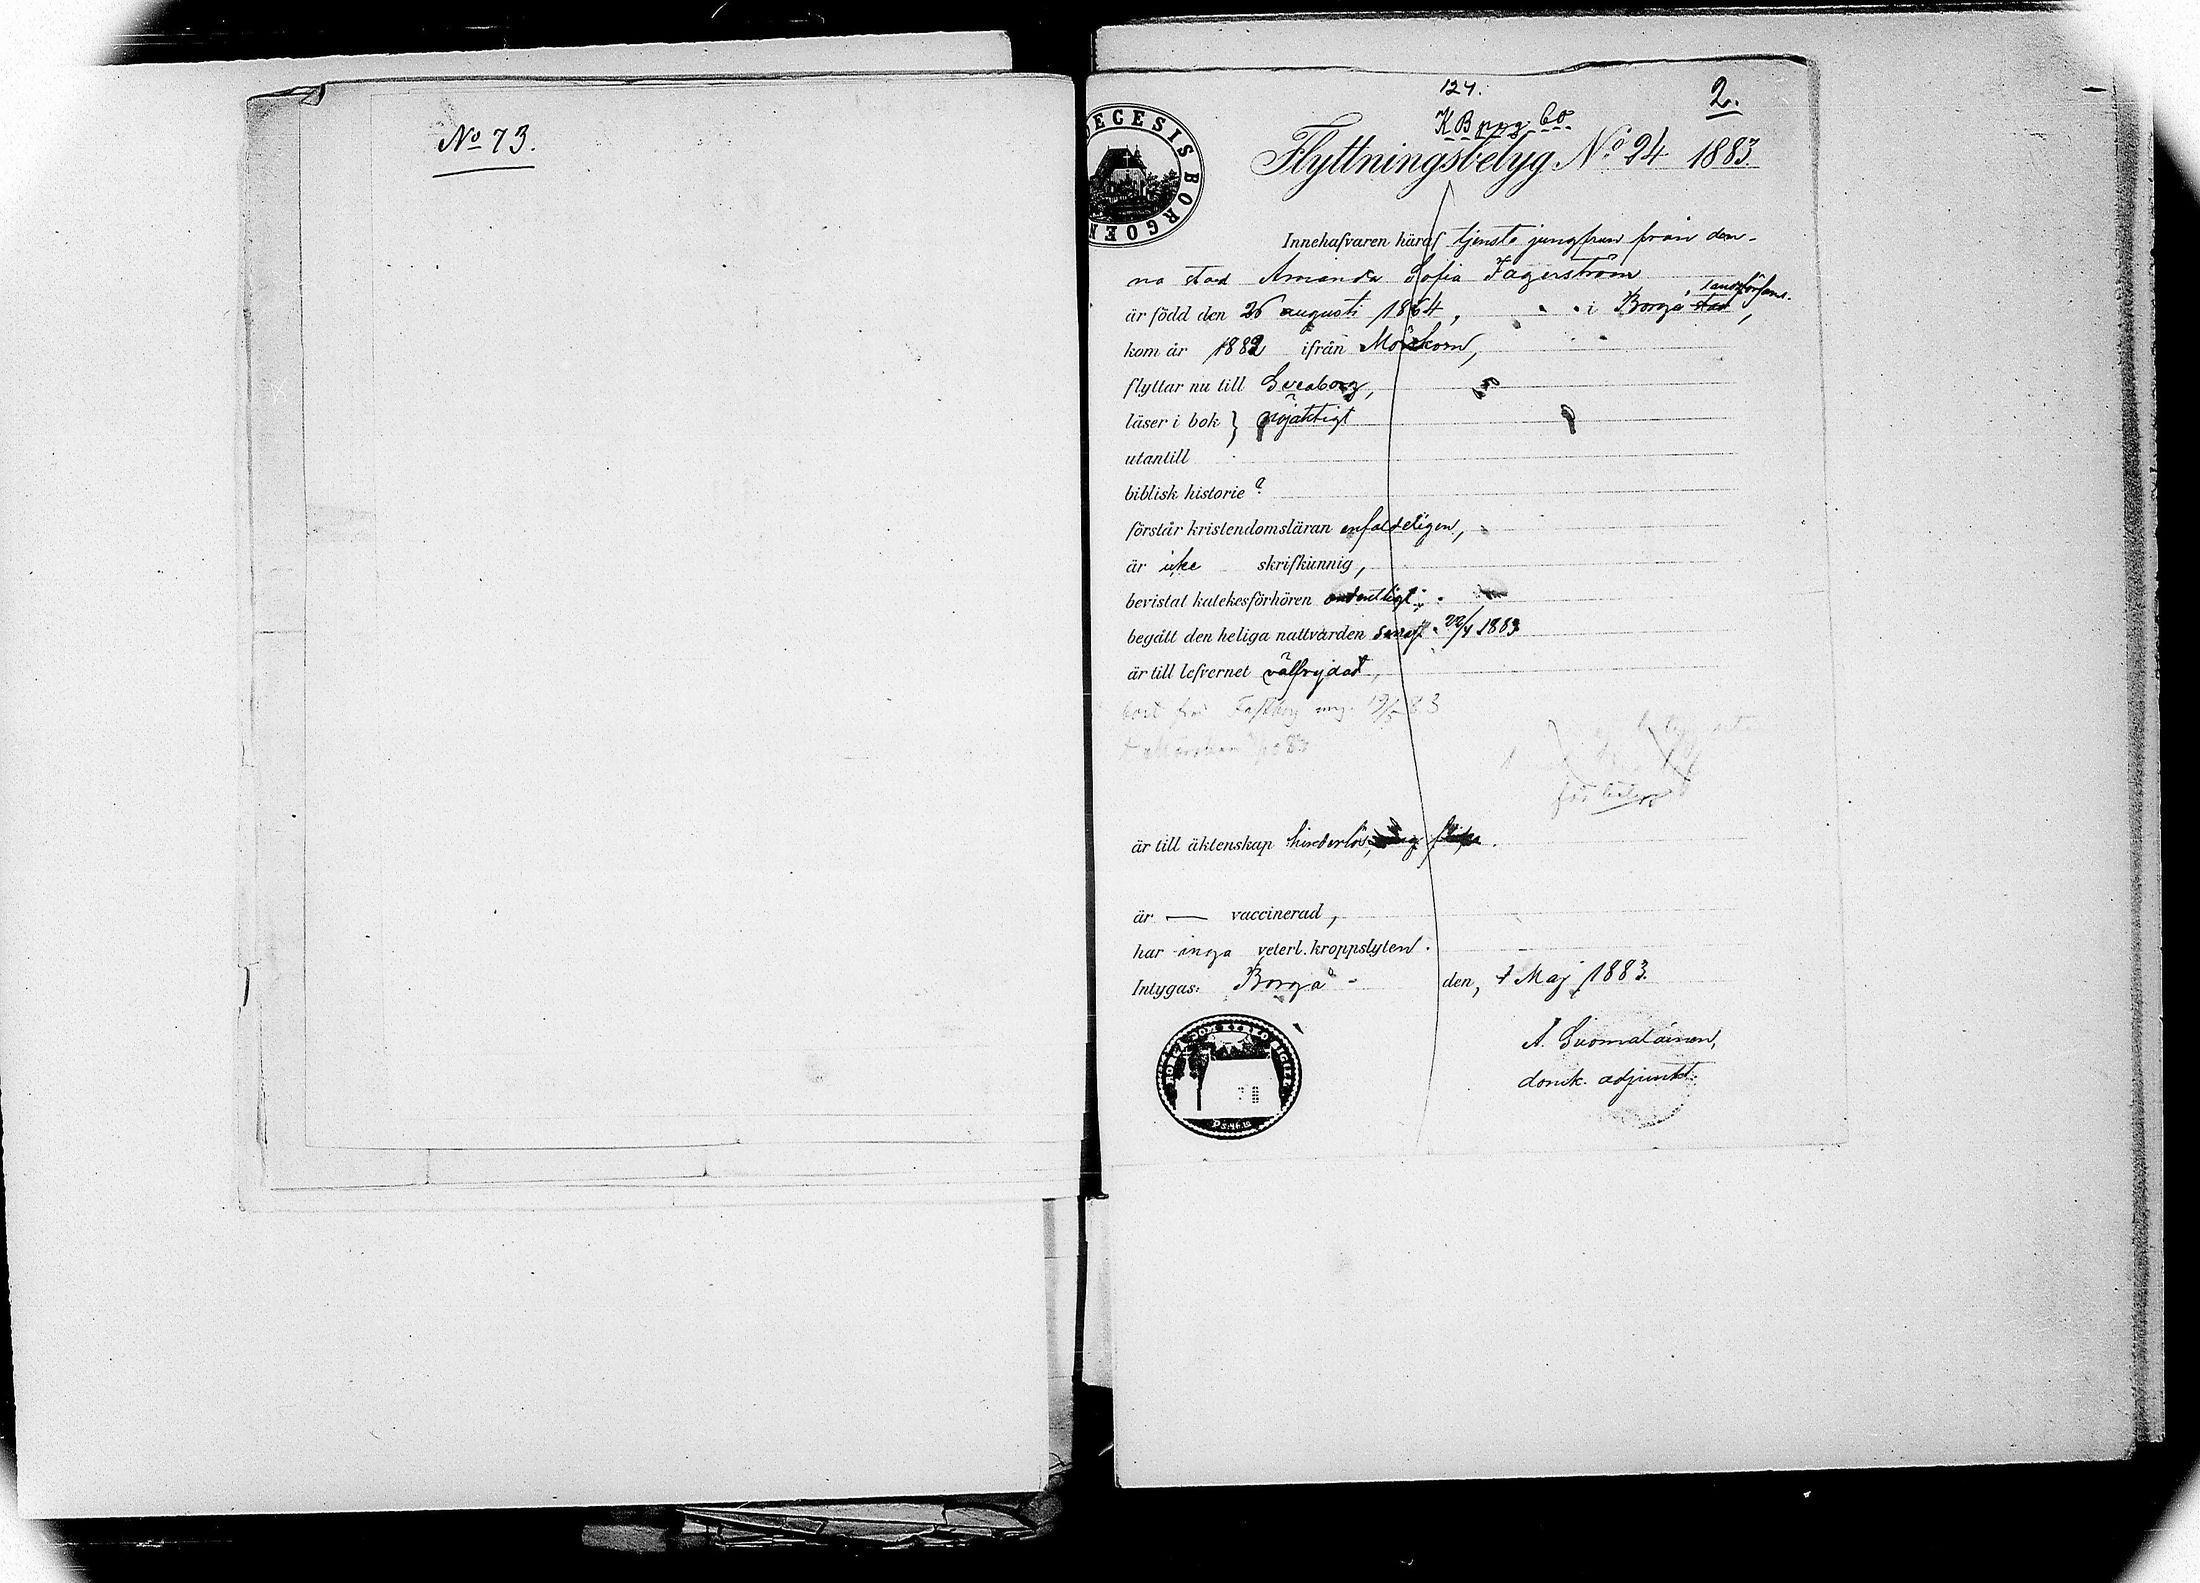 No 73.
124.
2.
K B pag 60
Flyttningsbetyg No 24 1883.
DECESIS BORGOEN
Innehafvaren häraf tjenste jungfrun från den-
na stad Amanda Sofia Fagerström
landsförsaml.
är född den 26 augusti 1864, i Borgå stad,
kom år 1882 ifrån Mörskom,
flyttar nu till Sveaborg,
läser i bok } nöjaktigt
utantill
biblisk historie
förstår kristendomsläran enfaldeligen,
är icke skrifkunnig,
bevistat katekesförhören ordentligt
begått den heliga nattvarden senast 22/4 1883
är till lefvernet välfrejdad,
19/5 83
är till äktenskap hinderlös,
är — vaccinerad,
har inga veterl. kroppslyten.
Intygas: Borgå den, 1 Maj 1883.
A. Suomalainen,
domk. adjunkt.
BORGÅ DOMKYRKO SIGILL
PS. 46.